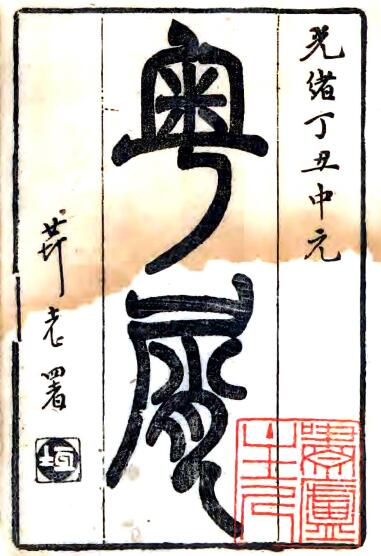 光緒丁丑中元
粵屑
老署